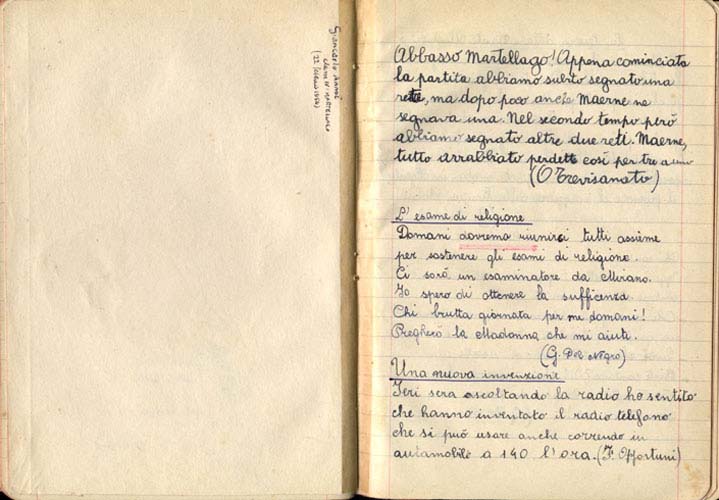 Giancarlo
(Abbasso Martellago! Appena cominciata
la partita abbiamo subito segnato una
rete, ma dopo poco anche Maerne ne
segnava una. Nel secondo tempo però
abbiamo segnato altre due reti. Maerne,
tutto arrabbiato perdette così per tre a uno
(O Trevisanato)
L'esame di religione
Domani dovremo riunirci tutti assieme
per sostenere gli esami di religione.
Ci sarà un esaminatore da Mirano.
Io spero di ottenere la sufficenza.
Chi brutta giornata per me domani!
Pregherò la Madonna che mi aiuti.
(G. Del Negro)
Una nuova invenzione
Ieri sera ascoltando la radio ho sentito
che hanno inventato il radio telefono
che si può usare anche correndo in
automobile a 140 l'ora. (F. Offortuni)